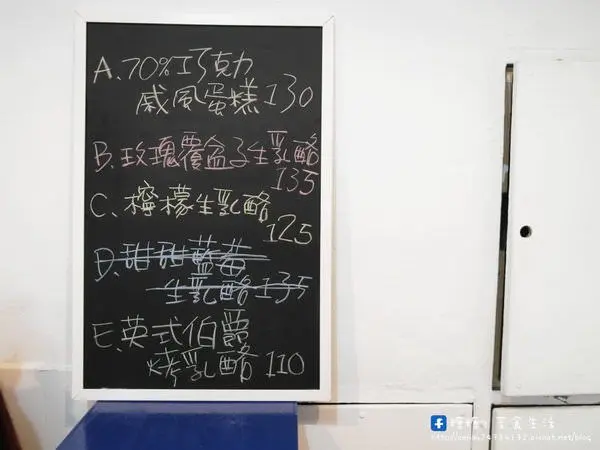 A、70%巧克力
威風蛋糕130
B、玫瑰覆盆子生乳酪
135
C、檸檬生乳酪
125
D、甜甜藍莓
生乳酪135
E、英式伯爵
烤乳酪110
美食生活